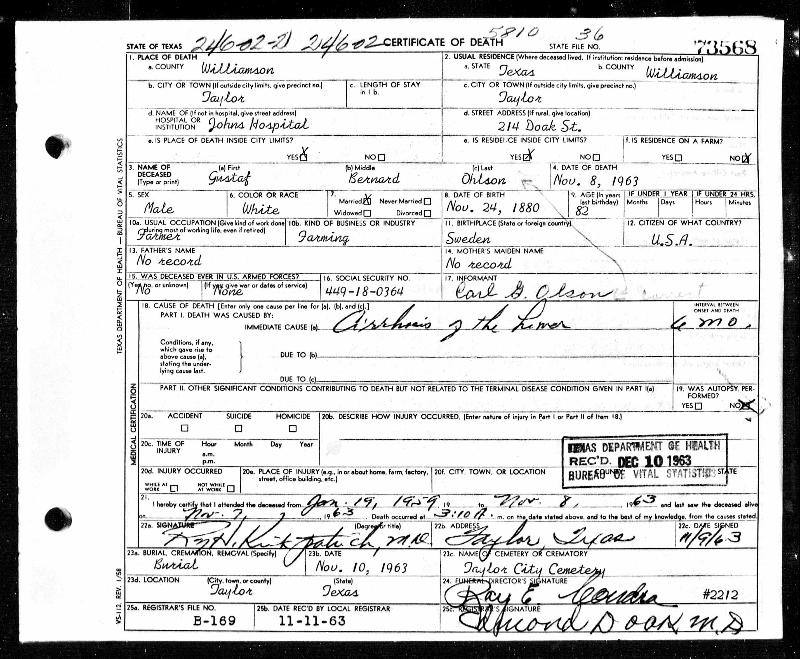 5810 36
STATE OF TEXAS 246-02-2) 24602 CERTIFICATE OF DEATH STATE FILE NO. 73568
1. PLACE OF DEATH 2. USUAL RESIDENCE (Where deceased lived. If institution: residence before admission)
a. COUNTY Williamson a. STATE Texas b. COUNTY Williamson
b. CITY OR TOWN (If outside city limits, give precinct no.) c. LENGTH OF STAY in 1 b. c. CITY OR TOWN (If outside city limits, give precinct no.)
Taylor Taylor
d. NAME OF (If not in hospital, give street address) HOSPITAL OR INSTITUTION Johns Hospital d. STREET ADDRESS (If rural, give location) 214 Doak St.
e. IS PLACE OF DEATH INSIDE CITY LIMITS? e. IS RESIDENCE INSIDE CITY LIMITS? f. IS RESIDENCE ON A FARM?
YES X NO YES X NO YES NO X
3. NAME OF DECEASED (Type or print) (a) First (b) Middle (c) Last 4. DATE OF DEATH
Gustaf Bernard Ohlson Nov. 8, 1963
5. SEX 6. COLOR OR RACE 7. Married X Never Married Widowed Divorced 8. DATE OF BIRTH 9. AGE (In years last birthday) IF UNDER 1 YEAR Months Days IF UNDER 24 HRS. Hours Minutes
Male White Nov. 24, 1880 82
10a. USUAL OCCUPATION (Give kind of work done during most of working life, even if retired) 10b. KIND OF BUSINESS OR INDUSTRY 11. BIRTHPLACE (State or foreign country) 12. CITIZEN OF WHAT COUNTRY?
Farmer Farming Sweden U.S.A.
13. FATHER'S NAME 14. MOTHER'S MAIDEN NAME
No record No record
15. WAS DECEASED EVER IN U.S. ARMED FORCES? (Yes, no, or unknown) (If yes, give war or dates of service) 16. SOCIAL SECURITY NO. 17. INFORMANT
No None 449-18-0364 Carl G. Olson
18. CAUSE OF DEATH [Enter only one cause per line for (a), (b), and (c).] INTERVAL BETWEEN ONSET AND DEATH
PART I. DEATH WAS CAUSED BY:
IMMEDIATE CAUSE (a) Cirrhosis of the Liver 6 mo.
Conditions, if any, which gave rise to above cause (a), stating the underlying cause last.
DUE TO (b)
DUE TO (c)
PART II. OTHER SIGNIFICANT CONDITIONS CONTRIBUTING TO DEATH BUT NOT RELATED TO THE TERMINAL DISEASE CONDITION GIVEN IN PART I(a) 19. WAS AUTOPSY PERFORMED?
YES NO X
20a. ACCIDENT SUICIDE HOMICIDE 20b. DESCRIBE HOW INJURY OCCURRED. (Enter nature of injury in Part I or Part II of Item 18.)
20c. TIME OF INJURY Hour Month Day Year a.m. p.m.
TEXAS DEPARTMENT OF HEALTH
REC'D. DEC 10 1963
BUREAU OF VITAL STATISTICS
20d. INJURY OCCURRED WHILE AT WORK NOT WHILE AT WORK 20e. PLACE OF INJURY (e.g., in or about home, farm, factory, street, office building, etc.) 20f. CITY, TOWN, OR LOCATION COUNTY STATE
21. I hereby certify that I attended the deceased from Jan. 19, 1959, 19 to Nov. 8, 1963 and last saw the deceased alive
on Nov. 7, 1963 Death occurred at 3:10 A. m. on the date stated above, and to the best of my knowledge, from the causes stated.
22a. SIGNATURE (Degree or title) 22b. ADDRESS 22c. DATE SIGNED
Kirkpatrick, M.D. Taylor Texas 11/9/63
23a. BURIAL, CREMATION, REMOVAL (Specify) 23b. DATE 23c. NAME OF CEMETERY OR CREMATORY
Burial Nov. 10, 1963 Taylor City Cemetery
23d. LOCATION (City, town, or county) (State) 24. FUNERAL DIRECTOR'S SIGNATURE
Taylor Texas Ray E. Condra #2212
25a. REGISTRAR'S FILE NO. 25b. DATE REC'D BY LOCAL REGISTRAR 25c. REGISTRAR'S SIGNATURE
B-169 11-11-63 Edmond Doak M.D.
TEXAS DEPARTMENT OF HEALTH — BUREAU OF VITAL STATISTICS
MEDICAL CERTIFICATION
VS-112, REV. 1/58